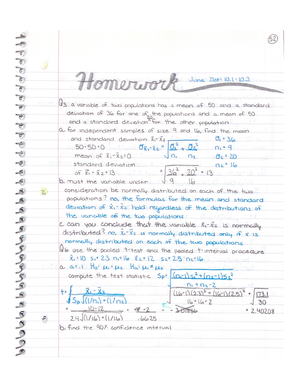 Homework June 30th 10.1-10.3
Q3. a variable of two populations has a mean of 50 and a standard
deviation of 36 for one of the populations and a mean of 50
and a standard deviation for the other population.
a. for independent samples of size 9 and 16, find the mean
and standard deviation x̄₁-x̄₂ σ₁ = 36
50-50=0 σx̄₁-x̄₂ = √(σ₁²/n₁ + σ₂²/n₂) n₁ = 9
mean of x̄₁-x̄₂=0 σ₂ = 20
standard deviation = √(36²/9 + 20²/16) = 13 n₂ = 16
of x̄₁-x̄₂ = 13
b. must the variable under
consideration be normally distributed on each of the two
populations? no, the formulas for the mean and standard
deviation of x̄₁-x̄₂ hold regardless of the distributions of
the variable on the two populations
c. can you conclude that the variable x̄₁-x̄₂ is normally
distributed? no, x̄₁-x̄₂ is normally distributed only if x is
normally distributed on each of the two populations.
use the pooled t-test and the pooled t-interval procedure
x̄₁=10 s₁=2.3 n₁=16 x̄₂=12 s₂=2.5 n₂=16
compute the test statistic Sp = √((n₁-1)s₁²+(n₂-1)s₂²
t = x̄₁-x̄₂
Sp√(1/n₁)+(1/n₂)
10-12
2.4√(1/16)+(1/16)
= 2.40208
b. find the 90% confidence interval